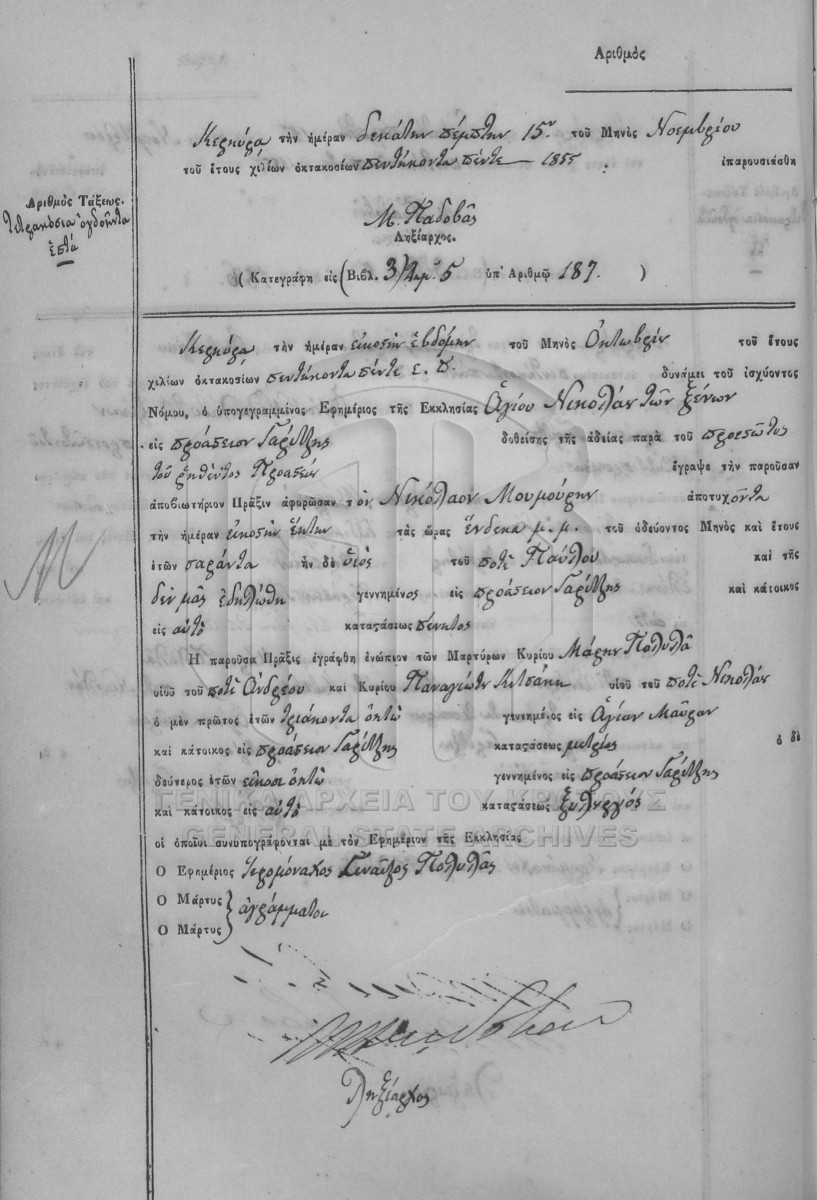 Αριθμός
Κερκύρα τὴν ἡμέραν δεκάτην πέμπτην 15ην τοῦ Μηνὸς Νοεμβρίου
τοῦ ἔτους χιλίων ὀκτακοσίων πεντήκοντα πέντε — 1855 ἐπαρουσιάσθη
Αριθμὸς Τάξεως.
τετρακόσια ὀγδοῆντα
ἑπτά
Μ. Παδοβᾶς
Ληξίαρχος.
( Κατεγράφη εἰς (Βιβλ. 3) 5 ὑπ' Αριθμῷ 187. )
Κερκύρα τὴν ἡμέραν εἰκοστὴν ἑβδόμην τοῦ Μηνὸς Ὀκτωβρίου τοῦ ἔτους
χιλίων ὀκτακοσίων πεντήκοντα πέντε ε. π. δυνάμει τοῦ ἰσχύοντος
Νόμου, ὁ ὑπογεγραμμένος Εφημέριος τῆς Εκκλησίας Ἁγίου Νικολάου τῶν ξένων
εἰς προάστειον Γαρίτζης δοθείσης τῆς ἀδείας παρὰ τοῦ προεστῶτος
τοῦ ῥηθέντος Προαστείου ἔγραψε τὴν παροῦσαν
ἀποβιωτήριον Πρᾶξιν ἀφορῶσαν τὸν Νικόλαον Μουμούρην ἀποτυχόντα
τὴν ἡμέραν εἰκοστὴν ἕκτην τὰς ὥρας ἕνδεκα μ. μ. τοῦ ὁδεύοντος Μηνὸς καὶ ἔτους
ἐτῶν σαράντα ἦν δὲ υἱὸς τοῦ ποτὲ Παύλου καὶ τῆς
δὲν μᾶς ἐδηλώθη γεννημένος εἰς προάστειον Γαρίτζης καὶ κάτοικος
εἰς αὐτὸ καταστάσεως πένητος
Ἡ παροῦσα Πρᾶξις ἐγράφθη ἐνώπιον τῶν Μαρτύρων Κυρίου Μάρκου Πολυλᾶ
υἱοῦ τοῦ ποτὲ Ἀνδρέου καὶ Κυρίου Παναγιώτου Κιτσάκη υἱοῦ τοῦ ποτὲ Νικολάου
ὁ μὲν πρῶτος ἐτῶν τριάκοντα ὀκτὼ γεννημένος εἰς Ἁγίαν Μαῦραν
καὶ κάτοικος εἰς προάστειον Γαρίτζης καταστάσεως μετρίας ὁ δὲ
δεύτερος ἐτῶν εἴκοσι ὀκτὼ γεννημένος εἰς προάστειον Γαρίτζης
καὶ κάτοικος εἰς αὐτὸ καταστάσεως ξυλουργός
ΓΕΝΙΚΑ ΑΡΧΕΙΑ ΤΟΥ ΚΡΑΤΟΥΣ
GENERAL STATE ARCHIVES
οἱ ὁποῖοι συνυπογράφονται μὲ τὸν Εφημέριον τῆς Εκκλησίας
Ὁ Εφημέριος Ἱερομόναχος Πολυλᾶς
Ὁ Μάρτυς } ἀγράμματοι
Ὁ Μάρτυς
Ληξίαρχος